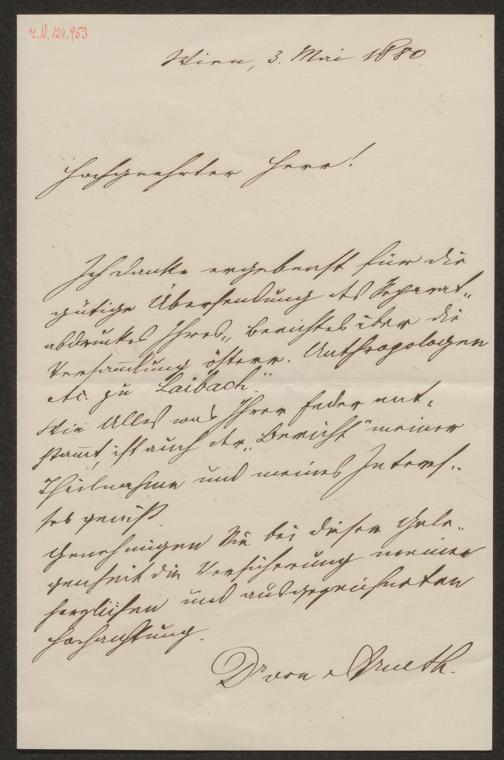 J.N. 124.953
Wien, 3. Mai 1880.
Hochgeehrter Herr!
Ich danke ergebenst für die
gütige Übersendung des Separat-
abdruckes Ihres „Berichtes über die
Versammlung österr. Anthropologen
etc. zu Laibach."
Wie Alles was Ihrer Feder ent-
stammt, ist auch der „Bericht" meiner
Theilnahme und meines Interes-
ses gewiß.
Genehmigen Sie bei dieser Gele-
genheit die Versicherung meiner
herzlichen und ausgezeichneten
Hochachtung.
Dr von Arneth.